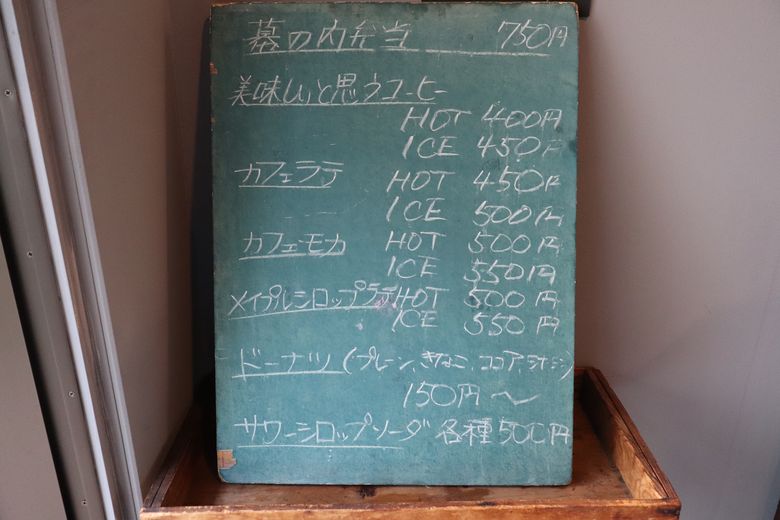 墓の内弁当 750円
美味しいと思うコーヒー
HOT 400円
ICE 450円
カフェラテ HOT 450円
ICE 500円
カフェモカ HOT 500円
ICE 550円
メイプルシロップラテ HOT 500円
ICE 550円
ドーナツ (プレーン、きなこ、ココア、シナモン)
150円〜
サワーシロップソーダ 各種500円